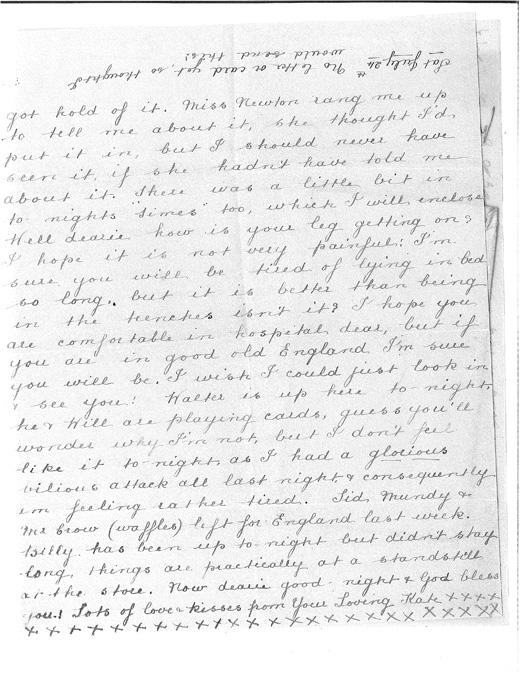 Sat July 24th No letter or card yet, so thought I
would send this!
got hold of it. Miss Newton rang me up
to tell me about it, she thought I'd
put it in, but I should never have
seen it, if she hadn't have told me
about it. There was a little bit in
to-nights "Times" too, which I will enclose
Well dearie how is your leg getting on?
I hope it is not very painful! I'm
sure you will be tired of lying in bed
so long, but it is better than being
in the trenches isn't it? I hope you
are comfortable in hospital dear, but if
you are in good old England I'm sure
you will be. I wish I could just look in
& see you! Walter is up here to-night,
he & Will are playing cards, guess you'll
wonder why I'm not, but I don't feel
like it to-night as I had a glorious
bilious attack all last night & consequently
im feeling rather tired. Sid, Mundy &
Mr Crow (waffles) left for England last week.
Billy has been up to-night but didn't stay
long, things are practically at a standstill
at the store. Now dearie good-night & God bless
you! Lots of love & kisses from Your Loving Kate x x x x
x x x x x x x x x x x x x x x x x x x x x x x x